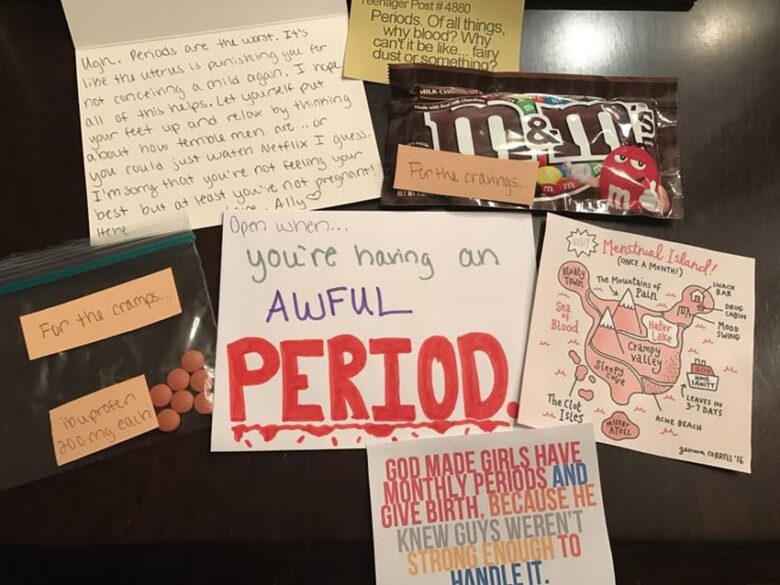 Ugh. Periods are the worst. It's
like the uterus is punishing you for
not conceiving a child again. I hope
all of this helps. Let yourself put
your feet up and relax by thinking
about how terrible men are... or
you could just watch Netflix I guess.
I'm sorry that you're not feeling your
best but at least you're not pregnant!
Ally ♡
Here
Teenager Post # 4880
Periods. Of all things,
why blood? Why
can't it be like... fairy
dust or something?
MILK
m&m's
m
m
m
For the cravings...
For the cramps...
ibuprofen
200 mg each
Open when...
you're having an
AWFUL
PERIOD.
VISIT
Menstrual Island!
(ONCE A MONTH!)
Bloaty
Town
The Mountains of
Pain
SNACK
BAR
DRUG
CABIN
MOOD
SWING
Sea
of
Blood
Hater
Lake
Crampy
Valley
Sleepy
Cove
HMS
SANITY
LEAVES IN
3-7 DAYS
The Clot
Isles
ACNE BEACH
MISERY
ATOLL
gemma CORRELL '16
GOD MADE GIRLS HAVE
MONTHLY PERIODS AND
GIVE BIRTH, BECAUSE HE
KNEW GUYS WEREN'T
STRONG ENOUGH TO
HANDLE IT.